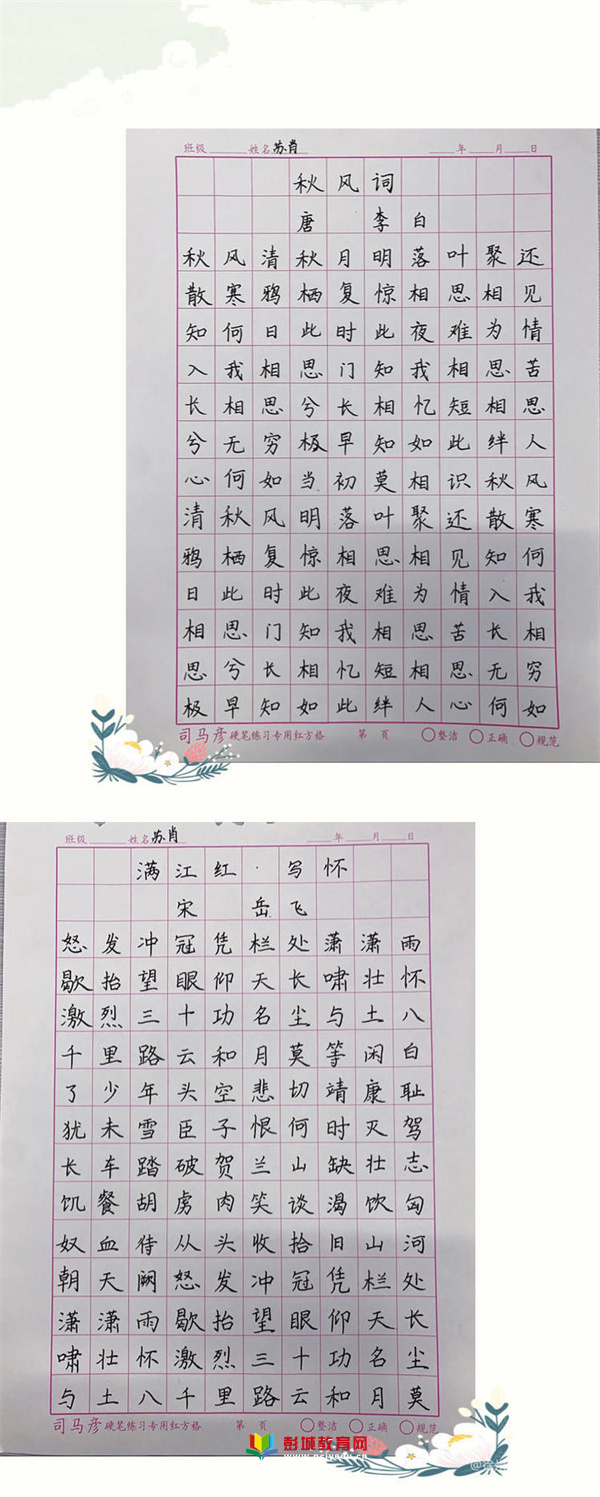 班级 姓名 苏肖 年 月 日
秋风词
唐 李白
秋风清秋月明落叶聚还
散寒鸦栖复惊相思相见
知何日此时此夜难为情
入我相思门知我相思苦
长相思兮长相忆短相思
兮无穷极早知如此绊人
心何如当初莫相识秋风
清秋风明落叶聚还散寒
鸦栖复惊相思相见知何
日此时此夜难为情入我
相思门知我相思苦长相
思兮长相忆短相思无穷
极早知如此绊人心何如
司马彦硬笔练习专用红方格 第 页 整洁 正确 规范
班级 姓名 苏肖 年 月 日
满江红·写怀
宋 岳飞
怒发冲冠凭栏处潇潇雨
歇抬望眼仰天长啸壮怀
激烈三十功名尘与土八
千里路云和月莫等闲白
了少年头空悲切靖康耻
犹未雪臣子恨何时灭驾
长车踏破贺兰山缺壮志
饥餐胡虏肉笑谈渴饮匈
奴血待从头收拾旧山河
朝天阙怒发冲冠凭栏处
潇潇雨歇抬望眼仰天长
啸壮怀激烈三十功名尘
与土八千里路云和月莫
司马彦硬笔练习专用红方格 第 页 整洁 正确 规范
彭城教育网